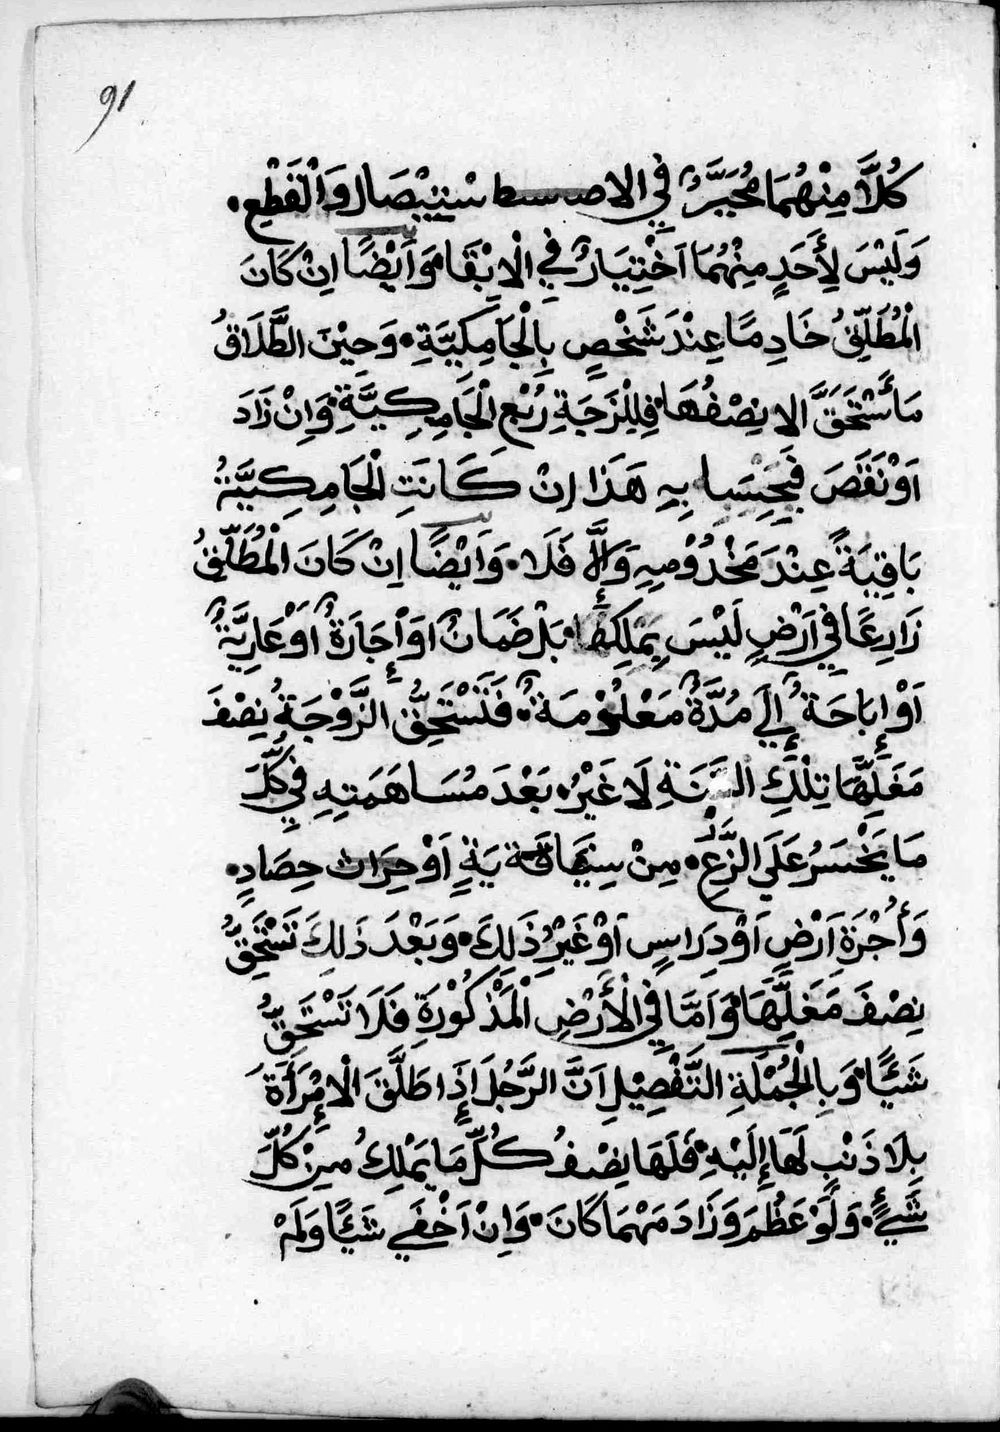 91
كُلاًّ مِنْهُمَا مُخَبَّرٌ فِي الاستِبْصَال وَالْقَطْعِ.
وَلَيْسَ لِأَحَدٍ مِنْهُمَا اَخْتِيَارٌ فِي الْاِبْقَا. وَاَيْضًا اِنْ كَانَ
الْمُطَلِّقُ خَادِمًا عِنْدَ شَخْصٍ بِالْجَامِكِيَّةِ. وَحِيْنَ الطَّلَاقُ
مَاٌسْتَحَقَّ الا نِصْفُهَا. فِللْزَجَةِ رُبْعِ الْجَامِكِيَّةِ. وَاِنْ زَادَ
اَوْ نَقَصَ فَبِحِسَبا بِهِ هَذَا اِنْ كَانَتِ الْجَامِكِيَّةُ
بَاقِيَةً عِنْدَ مَخْدُوْمِهِ وَإِلَّا فَلَا. وَاَيْضًا اِنْ كَانَ الْمُطَلِّقُ
زَارِعًا فِي اَرْضٍ لَيْسَ يَمْلِكِهَا. بَلْ ضَمَانٌ اَوْ إِجَارَةٌ اَوْ عَارِيَّةٌ
اَوْ إِبَاحَةٌ إِلَي مُدَّةٌ مَعْلُوْمَةٌ. فَتَسْتَحِقُّ الزَّوْجَةُ نِصْفَ
مَغَلِّهَا تِلْكَ السَّنَةِ لَا غَيْرُ. بَعْدَ مُسَاهَمَتِهِ فِي كُلَّ
مَا يَخْسَرُ عَلَي الزَّرْعِ. مِنْ سِقَايَةٍ اَوْ حِرَاث حِصَادٍ.
وَأُجْرَةِ اَرْضٍ اَوْ دِرَاسٍ اَوْ غَيْرُ ذَلِكَ. وَبَعْدَ ذَلِكَ تَسْتَحِقُّ
نِصْفَ مَغَلِّهَا. وَاَمَّا فِي الْأَرْضِ الْمَذْكُوْرَةِ فَلَا تَسْتَحَقُّ
شَيْئًا. وَبِالْجُمْلَةِ التَّفْصِيْلِ اَنَّ الرَّجُلَ إِذَا طَلَّقَ الْاِمْرَأَةَ
بِلَا ذَنْبٍ لَهَا إِلَيْهِ. فَلَهَا نِصْفُ كُلِّ مَا يَمْلِكُ مِنْ كُلِّ
شَيْءٍ. وَلَوْ عَظُمَ وَزَادَ مَهْمَا كَانَ. وَاِنْ اَخْفَي شَيْئًا وَلَمْ